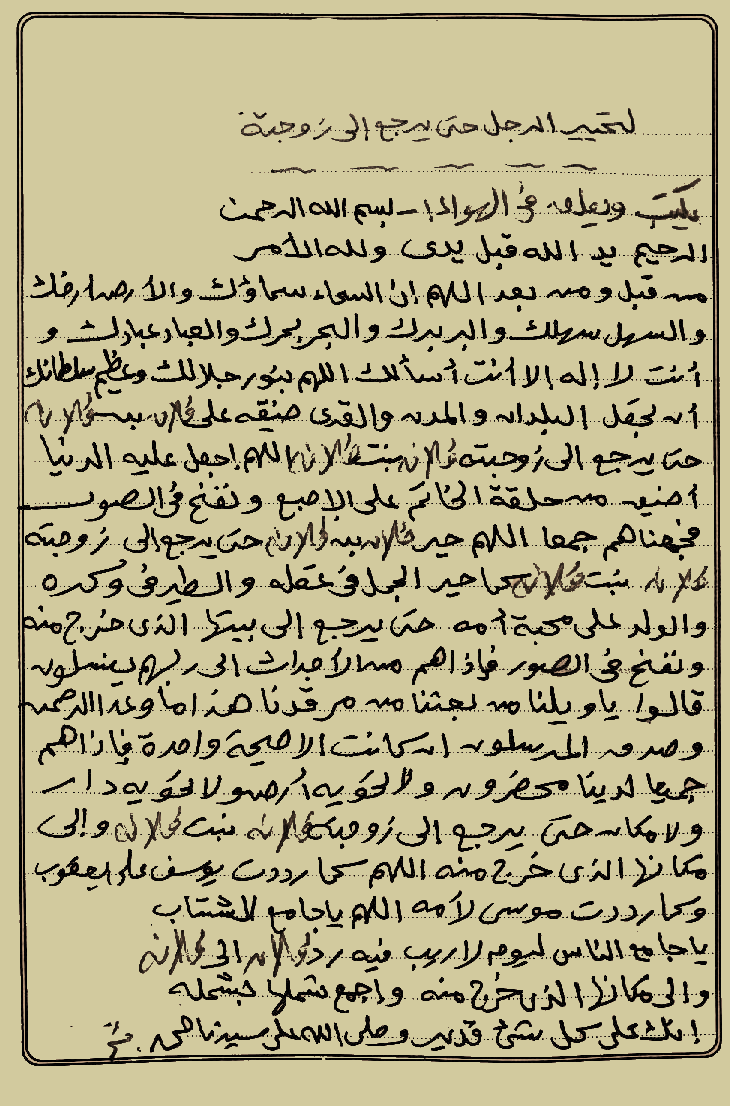 لتحيير الرجل حتى يرجع الى زوجته
يكتب ويعلق في الهواء بسم الله الرحمن
الرحيم يد الله قبل يدى ولله الأمر
من قبل ومن بعد اللهم ان السماء سماؤك والارض ارضك
والسهل سهلك والبر برك والبحر بحرك والعباد عبادك و
أنت لا إله الا أنت أسألك اللهم بنور جلالك وعظيم سلطانك
أن تجعل البلدان والمدن والقرى ضيقه على فلان بن فلانه
حتى يرجع الى زوجته فلانه بنت فلانه اللهم اجعل عليه الدنيا
أضيق من حلقة الخاتم على الاصبع ونفخ فى الصور
فجمعناهم جمعا اللهم حير فلان بن فلانه حتى يرجع الى زوجته
فلانه بنت فلانه كما حير الجمل فى عقله والطير فى وكره
والولد على محبة أمه حتى يرجع الى بيتها الذى خرج منه
ونفخ فى الصور فإذا هم من الأجداث الى ربهم ينسلون
قالوا ياويلنا من بعثنا من مرقدنا هذا ما وعد الرحمن
وصدق المرسلون ان كانت الا صيحة واحدة فاذا هم
جميعا لدينا محضرون ولا تحويه أرض ولا تحويه دار
ولا مكان حتى يرجع الى زوجته فلانه بنت فلانه وإلى
مكانها الذى خرج منه اللهم كما رددت يوسف على يعقوب
وكما رددت موسى لأمه اللهم ياجامع الشتات
ياجامع الناس ليوم لاريب فيه رد فلان الى فلانه
والى مكانها الذى خرج منه واجمع شملها بشمله
إنك على كل شئ قدير وصلى الله على سيدنا محمد